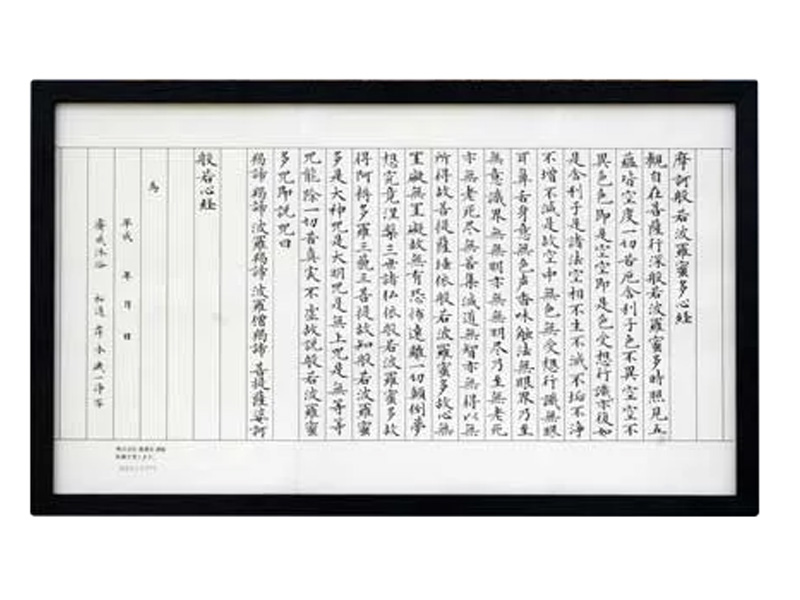 摩訶般若波羅蜜多心経
観自在菩薩行深般若波羅蜜多時照見五
蘊皆空度一切苦厄舎利子色不異空空不
異色色即是空空即是色受想行識亦復如
是舎利子是諸法空相不生不滅不垢不浄
不増不減是故空中無色無受想行識無眼
耳鼻舌身意無色声香味触法無眼界乃至
無意識界無無明亦無無明尽乃至無老死
亦無老死尽無苦集滅道無智亦無得以無
所得故菩提薩埵依般若波羅蜜多故心無
罣礙無罣礙故無有恐怖遠離一切顛倒夢
想究竟涅槃三世諸仏依般若波羅蜜多故
得阿耨多羅三藐三菩提故知般若波羅蜜
多是大神咒是大明咒是無上咒是無等等
咒能除一切苦真実不虚故説般若波羅蜜
多咒即説咒曰
羯諦羯諦波羅羯諦波羅僧羯諦菩提薩婆訶
般若心経
為
平成 年 月 日